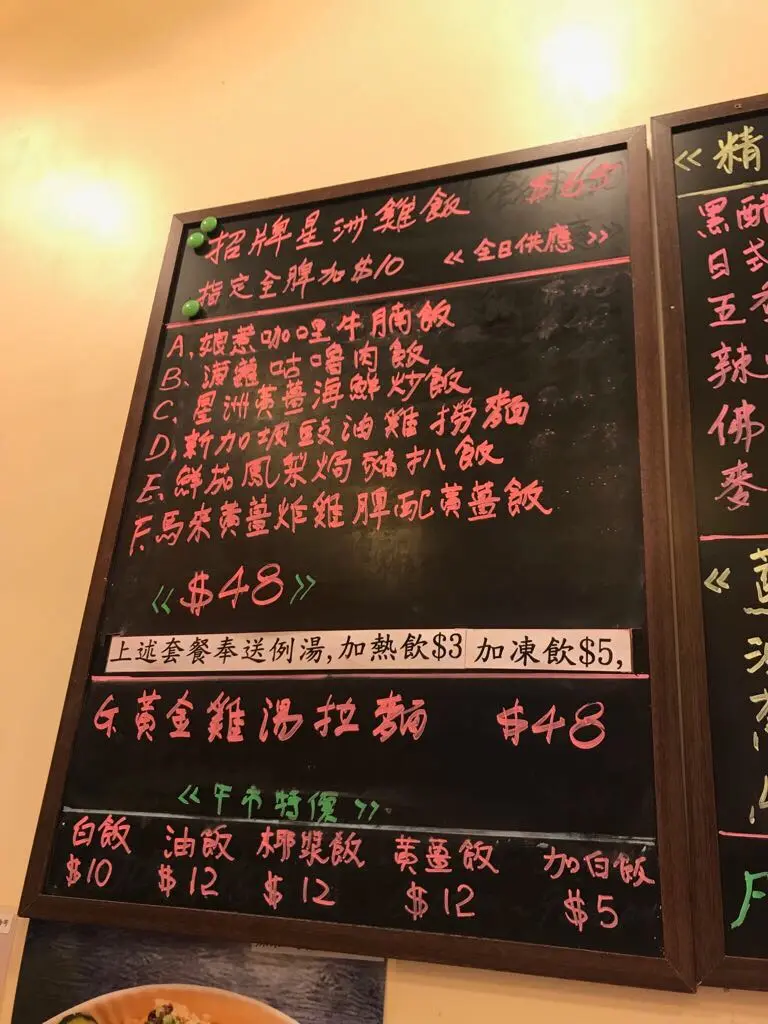 招牌星洲雞飯 $65
指定全髀加$10 《全日供應》
A, 娘惹咖哩牛腩飯
B、菠蘿咕嚕肉飯
C、星洲黃薑海鮮炒飯
D, 新加坡豉油雞撈麵
E, 鮮茄鳳梨焗豬扒飯
F. 馬來黃薑炸雞髀配黃薑飯
《$48》
上述套餐奉送例湯,加熱飲$3 加凍飲$5,
G. 黃金雞湯拉麵 $48
《午市特價》
白飯 油飯 椰漿飯 黃薑飯 加白飯
$10 $12 $12 $12 $5
《精
黑醋
日式
五香
辣
佛
麥
《
F